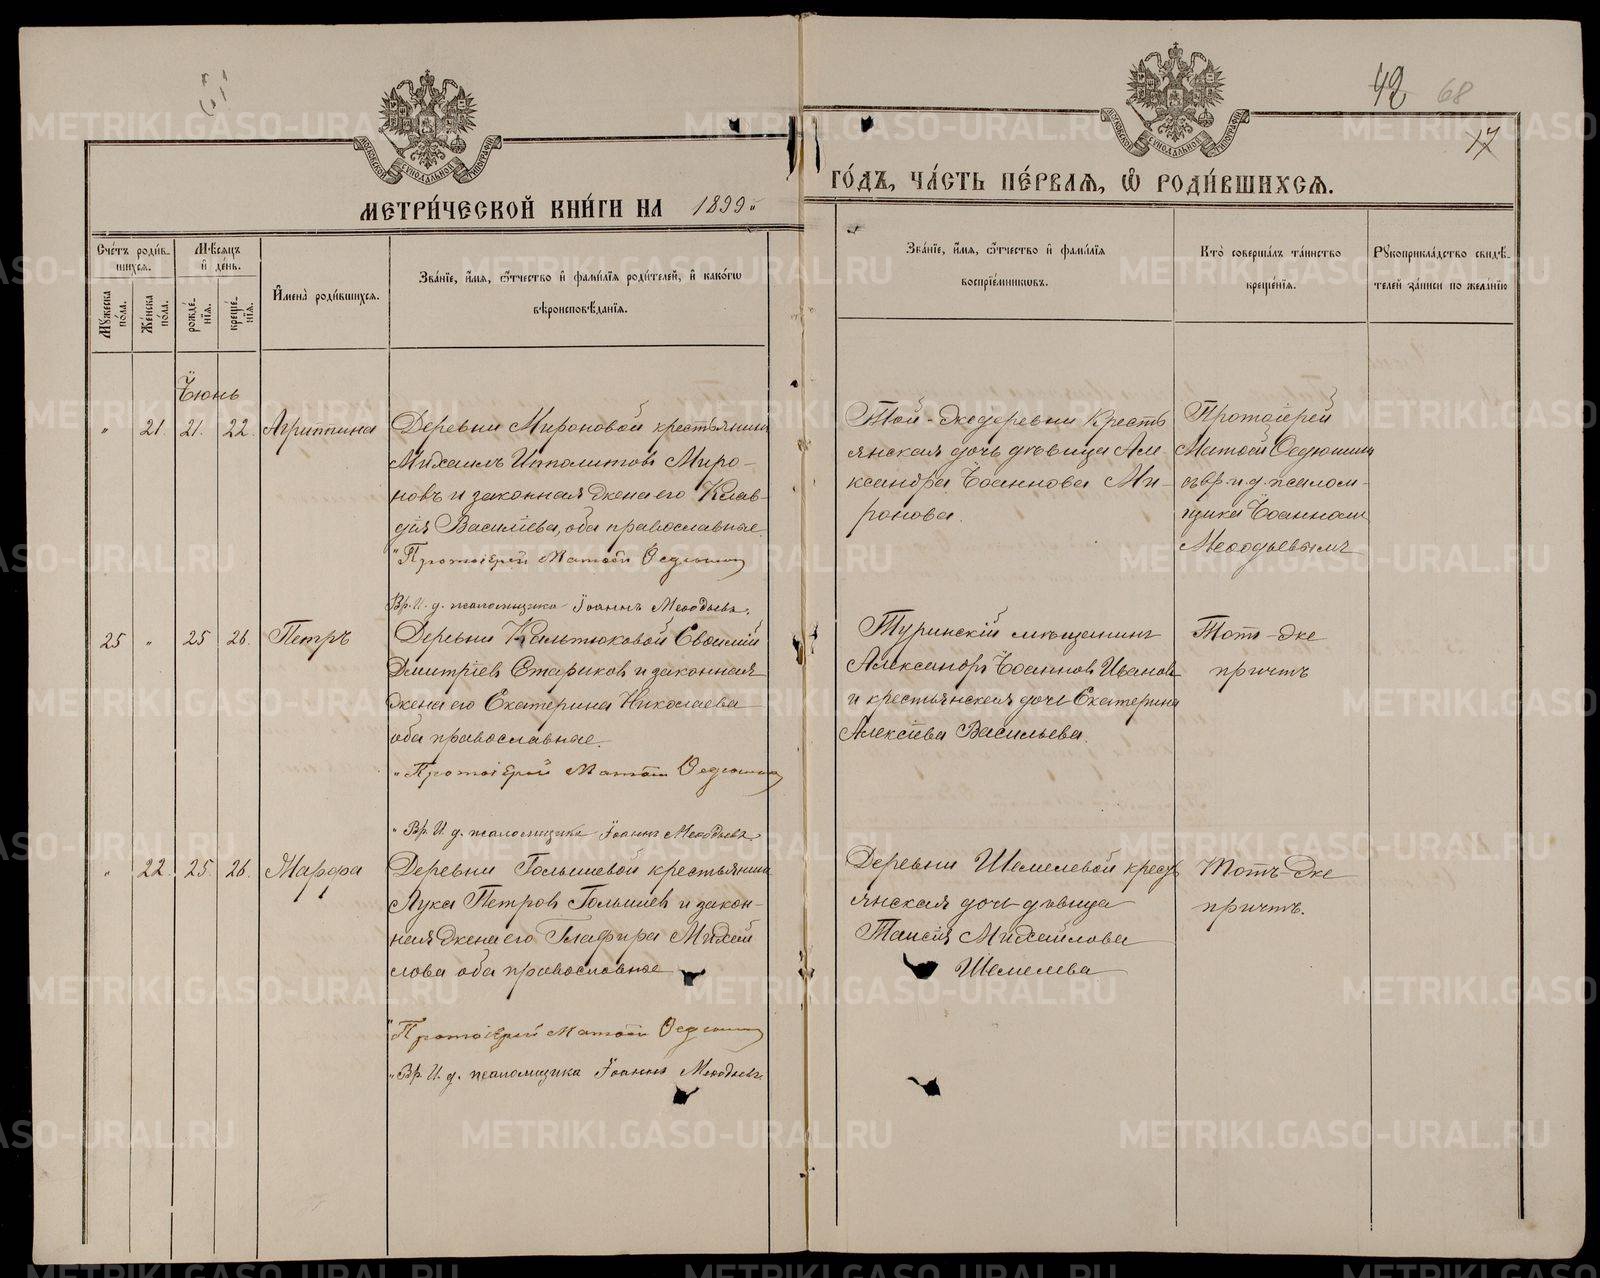 42 68
17
МОСКОВСКОЙ СѴНОДАЛЬНОЙ ТИПОГРАФІИ
МОСКОВСКОЙ СѴНОДАЛЬНОЙ ТИПОГРАФІИ
МЕТРИ́ЧЕСКОЙ КНИ́ГИ НА 1899
ГО́ДЪ, ЧА́СТЬ ПЕ́РВАЯ, Ѽ РОДИ́ВШИХСЯ.
Сче́тъ роди́в-
шихся.
Мꙋ́жеска по́ла.
Же́нска по́ла.
Мѣ́сяцъ
и҆ де́нь.
рожде́-
нїя.
креще́-
нїя.
И҆мена̀ роди́вшихся.
Зва́нїе, и҆́мя, ѻ҆́тчество и҆ фами́лїя роди́телей, и҆ како́гѡ
вѣроисповѣ́данїя.
Зва́нїе, и҆́мя, ѻ҆́тчество и҆ фами́лїя
воспрїе́мниковъ.
Кто̀ соверша́лъ та́инство
креще́нїя.
Рꙋкоприкла́дство свидѣ́-
телей за́писи по жела́нїю
Іюнь
" 21 21. 22. Агриппина
Деревни Мироновой крестьянинъ
Михаилъ Ипполитовъ Миро-
новъ и законная жена его Клав-
дія Василіева, оба православные.
"Протоіерей Матѳій Ѳедюшинъ
Вр. И. д. псаломщика Іоаннъ Меѳодьевъ.
Той-же деревни кресть
янская дочь дѣвица Але
ксандра Іоаннова Ми-
ронова.
Протоіерей
Матѳій Ѳедюшинъ
съ вр. и. д. псалом-
щика Іоанномъ
Меѳодьевымъ
25 " 25 26. Петръ
Деревни Калтюковой Евѳимій
Дмитріевъ Стариковъ и законная
жена его Екатерина Николаева
оба православные.
"Протоіерей Матѳій Ѳедюшинъ
"Вр. И. д. псаломщика Іоаннъ Меѳодьевъ
Туринскій мѣщанинъ
Александръ Іоанновъ Ивановъ
и крестьянская дочь Екатерина
Алексіева Васильева.
Тотъ-же
причтъ
" 22. 25. 26. Марѳа
Деревни Голышевой крестьянинъ
Лука Петровъ Голышевъ и закон-
ная жена его Глафира Михай
лова оба православные
"Протоіерей Матѳій Ѳедюшинъ
"Вр. И. д. псаломщика Іоаннъ Меѳодьевъ
Деревни Шемелевой крестъ
янская дочь дѣвица
Таисія Михайлова
Шемелева
Тотъ-же
причтъ.
METRIKI.GASO-URAL.RU